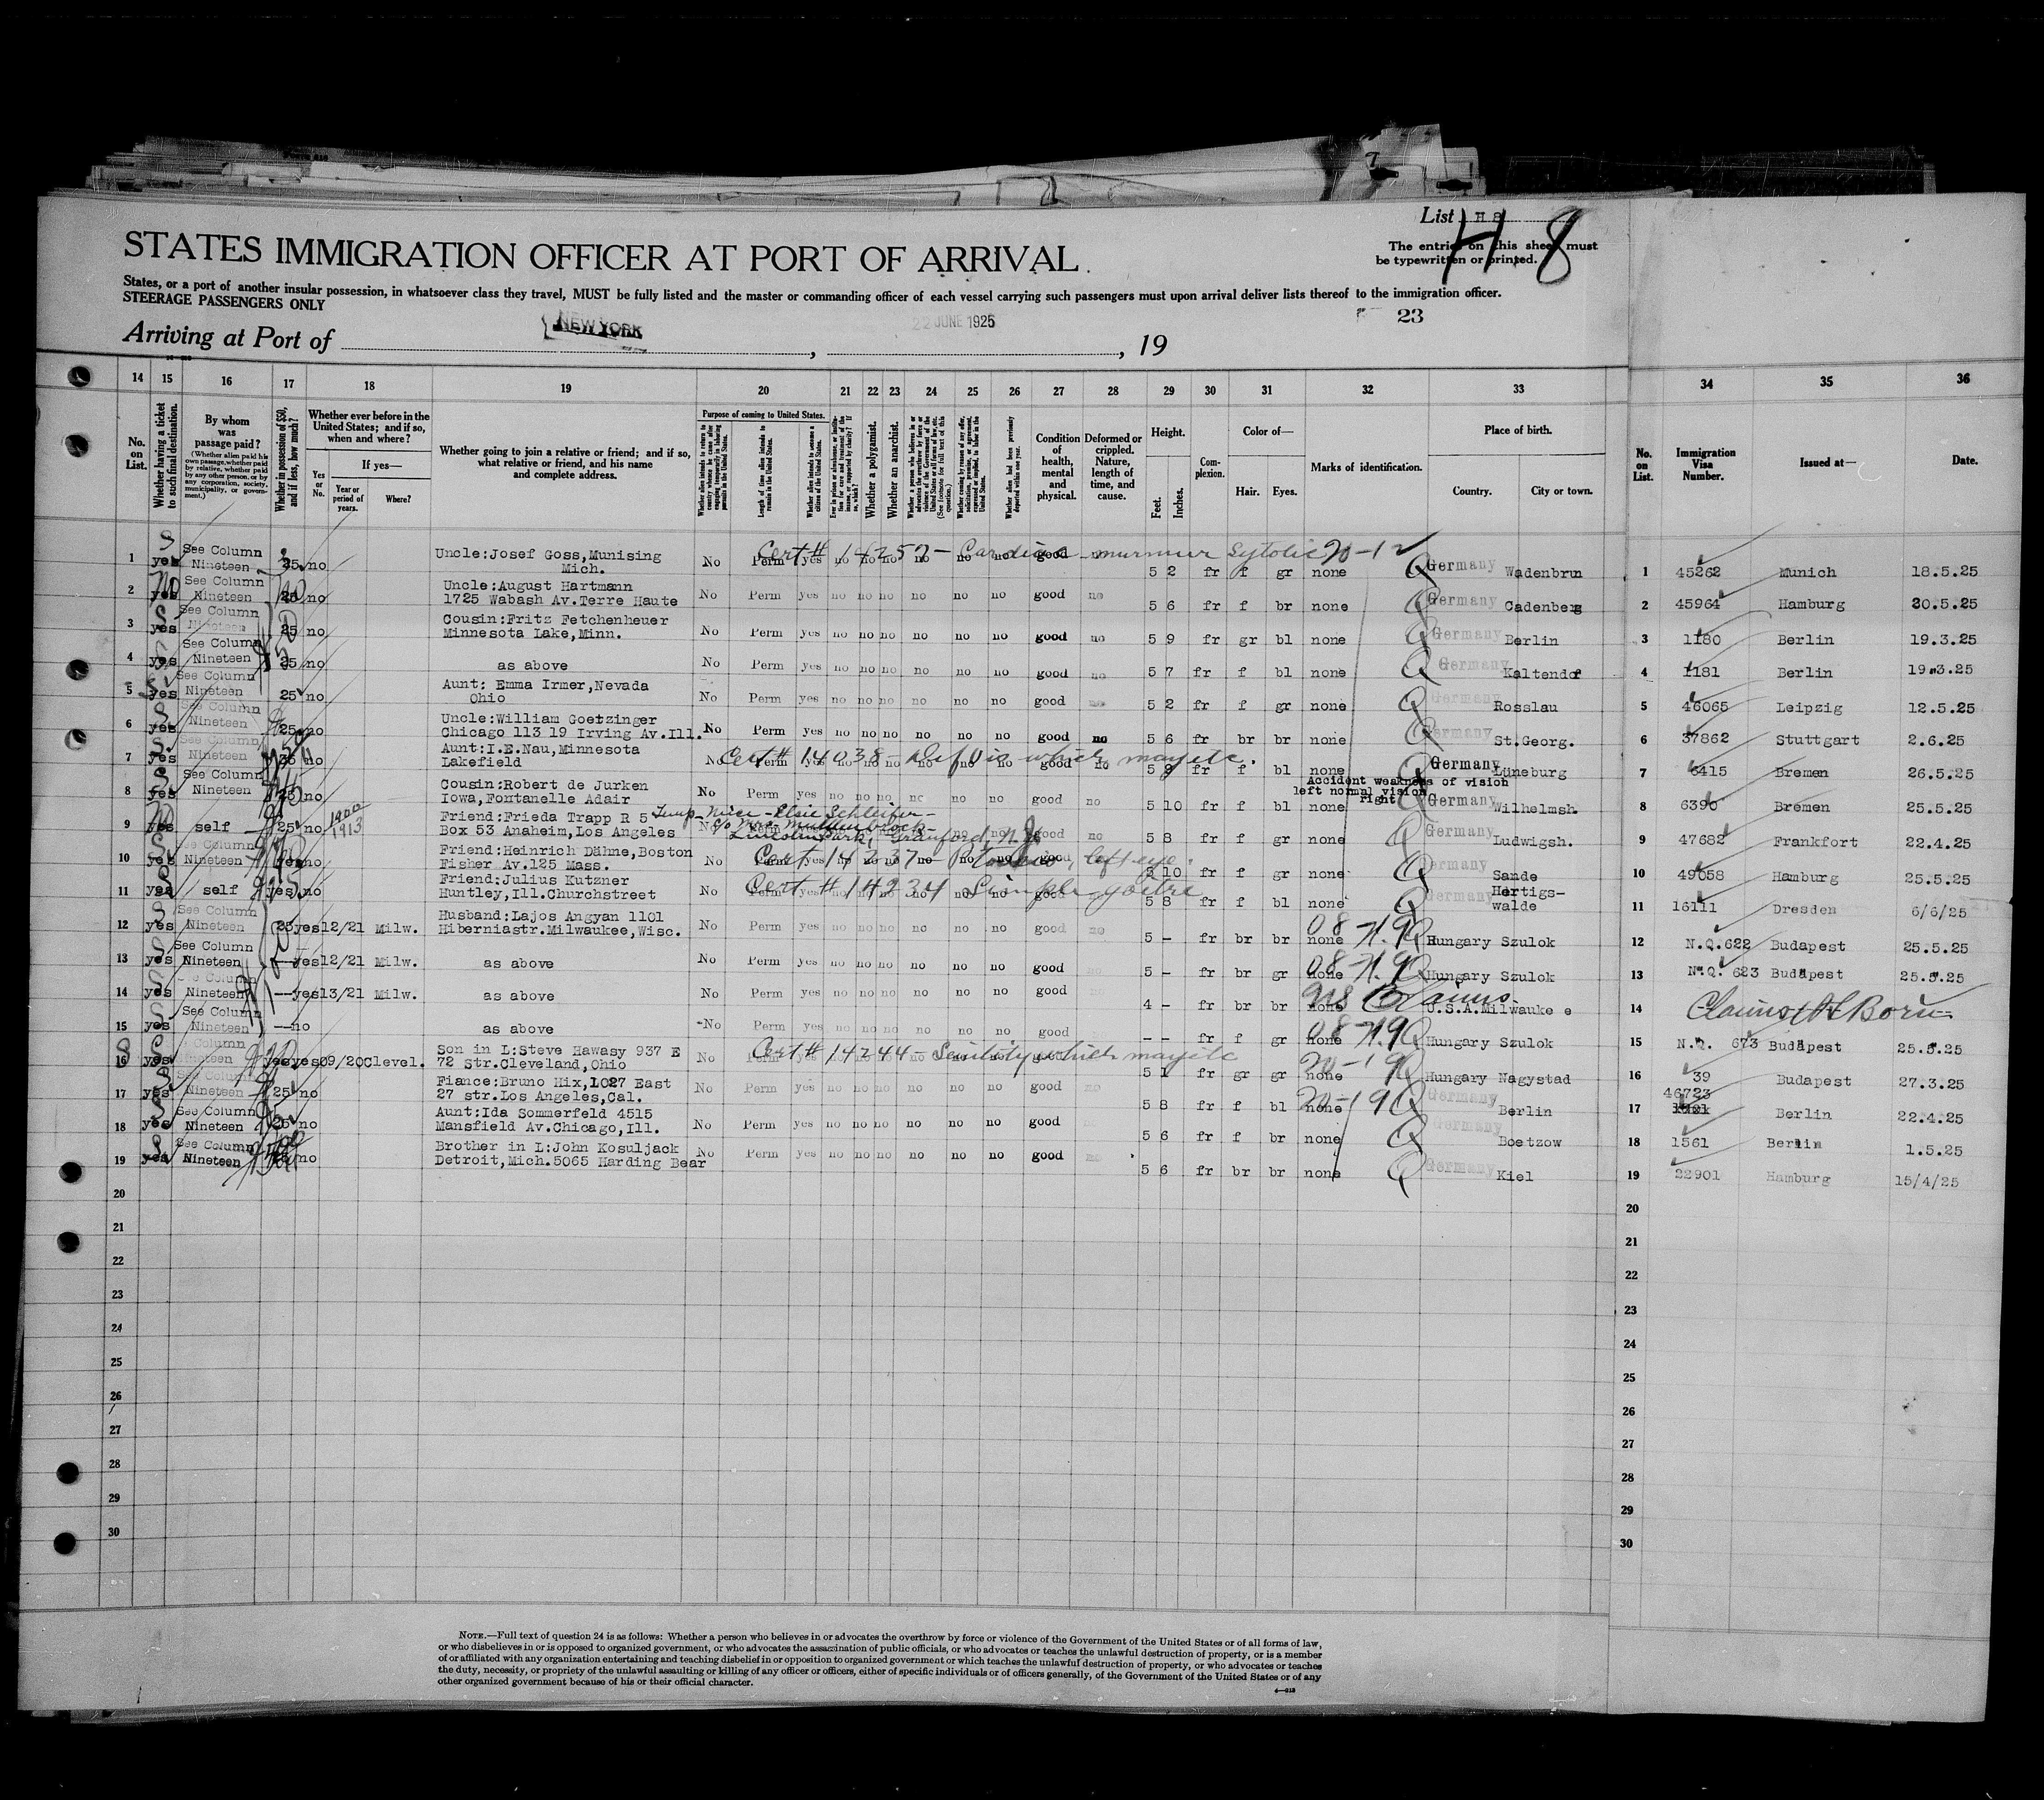 List H 8
H 8
STATES IMMIGRATION OFFICER AT PORT OF ARRIVAL
The entries on this sheet must
be typewritten or printed.
States, or a port of another insular possession, in whatsoever class they travel, MUST be fully listed and the master or commanding officer of each vessel carrying such passengers must upon arrival deliver lists thereof to the immigration officer.
STEERAGE PASSENGERS ONLY
Arriving at Port of NEW YORK, 22 JUNE 1925, 19
23
14 15 16 17 18 19 20 21 22 23 24 25 26 27 28 29 30 31 32 33 34 35 36
No. on List.
Whether having a ticket to such final destination.
By whom was passage paid?
(Whether alien paid his own passage, whether paid by relative, whether paid by any other person, or by any corporation, society, municipality, or government.)
Whether in possession of $50, and if less, how much?
Whether ever before in the United States; and if so, when and where?
Yes or No.
If yes—
Year or period of years.
Where?
Whether going to join a relative or friend; and if so, what relative or friend, and his name and complete address.
Purpose of coming to United States.
Whether alien intends to return to country whence he came after engaging temporarily in laboring pursuits in the United States.
Length of time alien intends to remain in the United States.
Whether alien intends to become a citizen of the United States.
Whether a polygamist.
Whether an anarchist.
Condition of health, mental and physical.
Deformed or crippled. Nature, length of time, and cause.
Height.
Feet. Inches.
Complexion.
Color of—
Hair. Eyes.
Marks of identification.
Place of birth.
Country. City or town.
No. on List.
Immigration Visa Number.
Issued at—
Date.
1 yes See Column Nineteen 25 no Uncle:Josef Goss,Munising Mich. No Perm yes no no no no no no good 5 2 fr f gr none Germany Wadenbrun 1 45262 Munich 18.5.25
Cert # 14252 - Cardiac murmur Systolic 20-12
2 yes See Column Nineteen 25 no Uncle:August Hartmann 1725 Wabash Av.Terre Haute No Perm yes no no no no no no good no 5 6 fr f br none Germany Cadenberg 2 45964 Hamburg 20.5.25
3 yes See Column Nineteen 25 no Cousin:Fritz Fetchenheuer Minnesota Lake,Minn. No Perm yes no no no no no no good no 5 9 fr gr bl none Germany Berlin 3 1180 Berlin 19.3.25
4 yes See Column Nineteen 25 no as above No Perm yes no no no no no no good no 5 7 fr f bl none Germany Kaltendof 4 1181 Berlin 19.3.25
5 yes See Column Nineteen 25 no Aunt: Emma Irmer,Nevada Ohio No Perm yes no no no no no no good no 5 2 fr f gr none Germany Rosslau 5 46065 Leipzig 12.5.25
6 yes See Column Nineteen 25 no Uncle:William Goetzinger Chicago 113 19 Irving Av.Ill. No Perm yes no no no no no no good no 5 6 fr br br none Germany St.Georg. 6 37862 Stuttgart 2.6.25
7 yes See Column Nineteen no Aunt:I.E.Nau,Minnesota Lakefield No Perm yes no no no no good no 5 8 fr f bl none Germany Lüneburg 7 6415 Bremen 26.5.25
Cert # 14038 which may etc.
Accident weakness of vision
left normal vision
right
8 yes See Column Nineteen 25 no Cousin:Robert de Jurken Iowa,Fontanelle Adair No Perm yes no no no no no no good no 5 10 fr f bl none Germany Wilhelmsh. 8 6390 Bremen 25.5.25
9 yes self 25 no 1900 1913 Friend:Frieda Trapp R 5 Box 53 Anaheim,Los Angeles No Perm no no good no 5 8 fr f br none Germany Ludwigsh. 9 47682 Frankfort 22.4.25
Niece - Elsie Schleifer -
c/o Mrs.
Lincoln Park, Cranford, N.J.
10 yes See Column Nineteen yes no Friend:Heinrich Dähne,Boston Fisher Av.125 Mass. No Perm yes no no no good 5 10 fr f gr none Germany Sande 10 49058 Hamburg 25.5.25
Cert 14237 left eye.
11 yes self yes no Friend:Julius Kutzner Huntley,Ill.Churchstreet No Perm yes no no no good 5 8 fr f bl none Germany Hertigs- walde 11 16111 Dresden 6/6/25
Cert # 14234 Simple goitre
12 yes See Column Nineteen 25 yes 12/21 Milw. Husband:Lajos Angyan 1101 Hiberniastr.Milwaukee,Wisc. No Perm yes no no no no no no good 5 - fr br br none Hungary Szulok 12 N.Q.622 Budapest 25.5.25
13 yes See Column Nineteen -- yes 12/21 Milw. as above No Perm yes no no no no no no good 5 - fr br gr none Hungary Szulok 13 N.Q. 623 Budapest 25.5.25
14 yes See Column Nineteen -- yes 13/21 Milw. as above No Perm yes no no no no no no good 4 - fr br br none U.S.A.Milwaukee 14 Claims US Born
15 yes See Column Nineteen -- no as above No Perm yes no no no no no no good - - fr f gr none Hungary Szulok 15 N.Q. 673 Budapest 25.5.25
16 yes See Column Nineteen yes yes 09/20 Clevel. Son in L:Steve Hawasy 937 E 72 Str.Cleveland,Ohio No Perm yes no no 5 1 fr gr gr none Hungary Nagystad 16 39 Budapest 27.3.25
Cert # 14244 - Senility which may etc
17 yes See Column Nineteen 25 no Fiance:Bruno Hix,1027 East 27 str.Los Angeles,Cal. No Perm yes no no no no no no good no 5 8 fr f bl none Germany Berlin 17 46723 Berlin 22.4.25
18 yes See Column Nineteen 25 no Aunt:Ida Sommerfeld 4515 Mansfield Av.Chicago,Ill. No Perm yes no no no no no no good 5 6 fr f br none Germany Boetzow 18 1561 Berlin 1.5.25
19 yes See Column Nineteen no Brother in L:John Kosuljack Detroit,Mich.5065 Harding Bear No Perm yes no no no no no no good no 5 6 fr br br none Germany Kiel 19 22901 Hamburg 15/4/25
20 20
21 21
22 22
23 23
24 24
25 25
26 26
27 27
28 28
29 29
30 30
NOTE.—Full text of question 24 is as follows: Whether a person who believes in or advocates the overthrow by force or violence of the Government of the United States or of all forms of law,
or who disbelieves in or is opposed to organized government, or who advocates the assassination of public officials, or who advocates or teaches the unlawful destruction of property, or is a member
of or affiliated with any organization entertaining and teaching disbelief in or opposition to organized government or which teaches the unlawful destruction of property, or who advocates or teaches
the duty, necessity, or propriety of the unlawful assaulting or killing of any officer or officers, either of specific individuals or of officers generally, of the Government of the United States or of any
other organized government because of his or their official character.